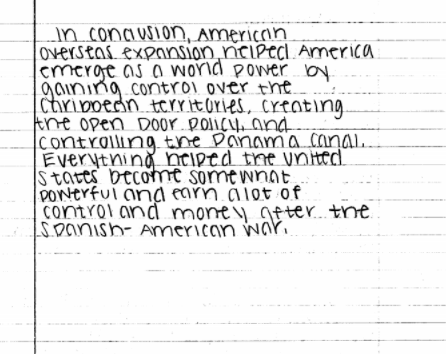 In conclusion, American
overseas expansion helped America
emerge as a world power by
gaining control over the
Caribbean territories, creating
the open Door policy, and
controlling the Panama Canal.
Everything helped the United
States become somewhat
powerful and earn alot of
control and money after the
Spanish-American War.